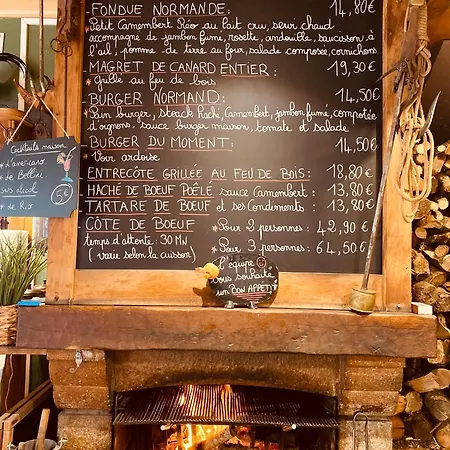 - FONDUE NORMANDE: 14,80€
Petit Camembert Réo au lait cru, servi chaud
accompagné de jambon fumé, rosette, andouille, saucisson à
l'ail, pomme de terre au four, salade composée, cornichons
MAGRET DE CANARD ENTIER: 19,30€
* Grillé au feu de bois
BURGER NORMAND: 14,50€
* Pain burger, steack haché, Camembert, jambon fumé, compotée
d'oignons, sauce burger maison, tomate et salade
BURGER DU MOMENT: 14,50€
* Voir ardoise
ENTRECÔTE GRILLÉE AU FEU DE BOIS: 18,80€
HACHÉ DE BOEUF POÊLÉ sauce Camembert: 13,80€
TARTARE DE BOEUF et ses Condiments: 13,80€
CÔTE DE BOEUF * Pour 2 personnes: 42,90€
temps d'attente: 30 MN
(varie selon la cuisson) * Pour 3 personnes: 64,50€
Cocktails maison
L'americano
Le Bellini
sans alcool
Le Rio
5€
L'équipe
Vous souhaite
un BON APPÉTIT